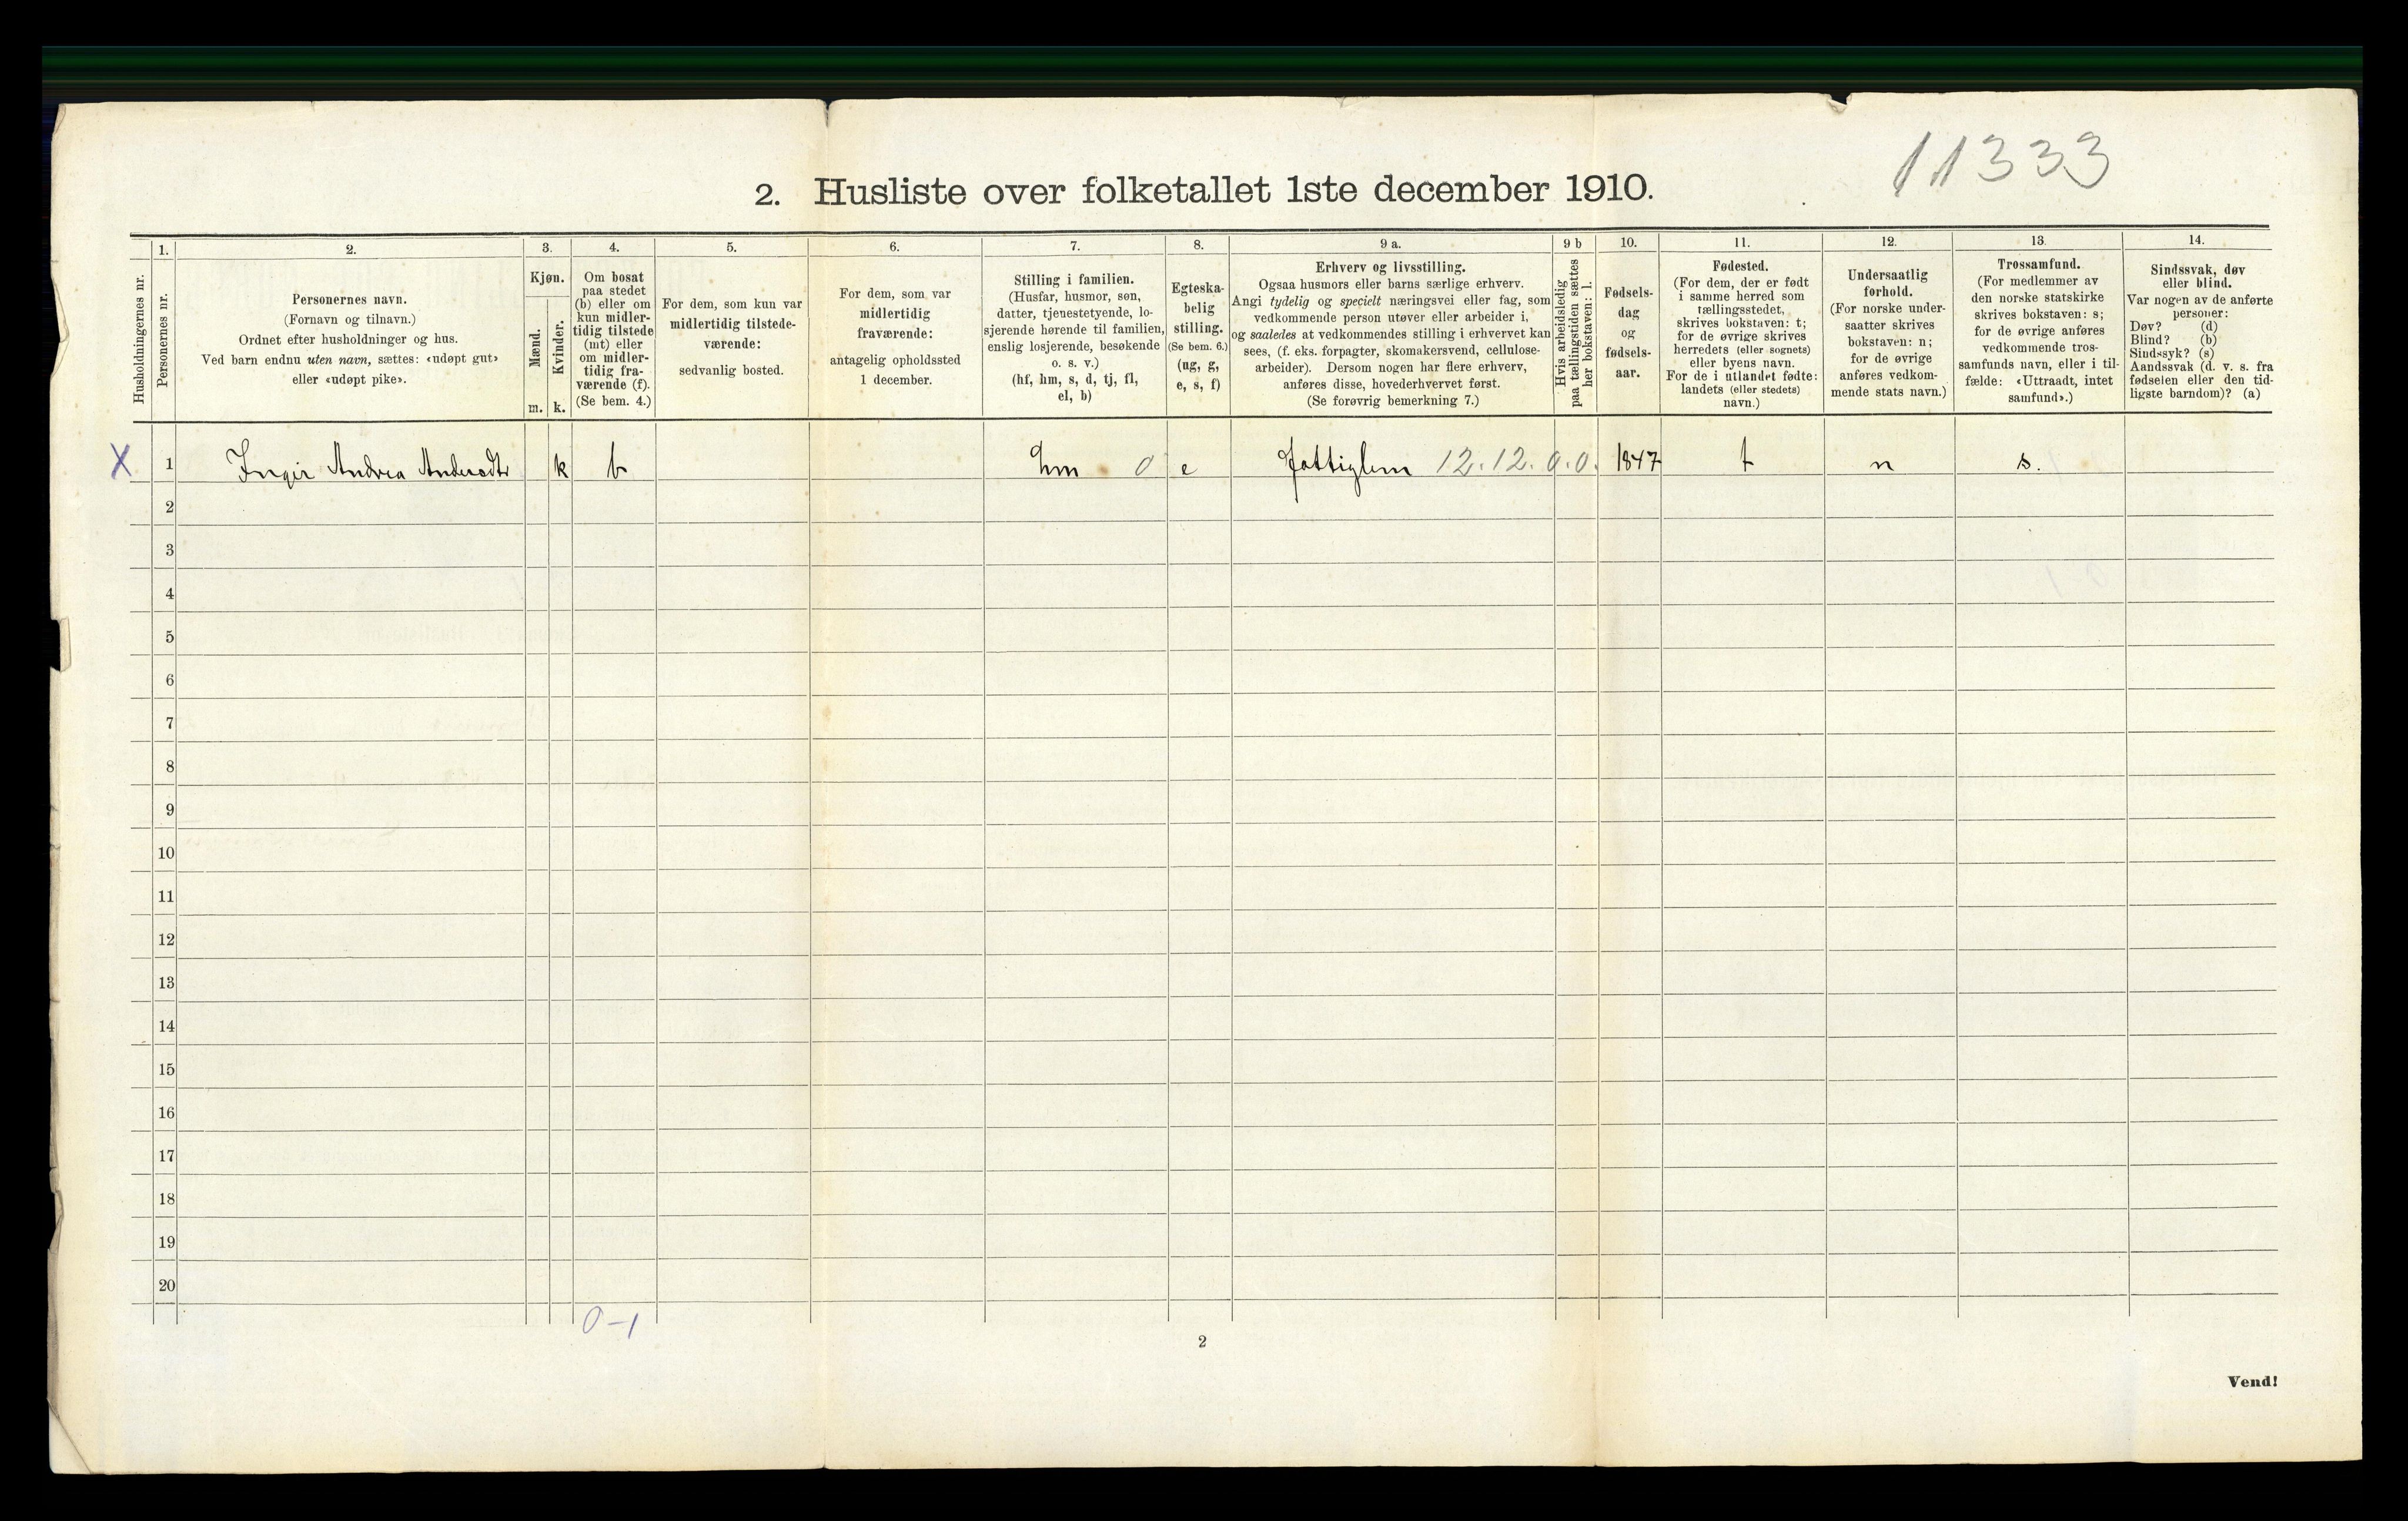 11333
2. Husliste over folketallet 1ste december 1910.
Husholdningernes nr.
1.
Personernes nr.
2.
Personernes navn.
(Fornavn og tilnavn.)
Ordnet efter husholdninger og hus.
Ved barn endnu uten navn, sættes: «udøpt gut»
eller «udøpt pike».
3.
Kjøn.
Mænd.
m.
Kvinder.
k.
4.
Om bosat
paa stedet
(b) eller om
kun midler-
tidig tilstede
(mt) eller
om midler-
tidig fra-
værende (f).
(Se bem. 4.)
5.
For dem, som kun var
midlertidig tilstede-
værende:
sedvanlig bosted.
6.
For dem, som var
midlertidig
fraværende:
antagelig opholdssted
1 december.
7.
Stilling i familien.
(Husfar, husmor, søn,
datter, tjenestetyende, lo-
sjerende hørende til familien,
enslig losjerende, besøkende
o. s. v.)
(hf, hm, s, d, tj, fl,
el, b)
8.
Egteska-
belig
stilling.
(Se bem. 6.)
(ug, g,
e, s, f)
9 a.
Erhverv og livsstilling.
Ogsaa husmors eller barns særlige erhverv.
Angi tydelig og specielt næringsvei eller fag, som
vedkommende person utøver eller arbeider i,
og saaledes at vedkommendes stilling i erhvervet kan
sees, (f. eks. forpagter, skomakersvend, cellulose-
arbeider). Dersom nogen har flere erhverv,
anføres disse, hovederhvervet først.
(Se forøvrig bemerkning 7.)
9 b
Hvis arbeidsledig
paa tællingstiden sættes
her bokstaven: l.
10.
Fødsels-
dag
og
fødsels-
aar.
11.
Fødested.
(For dem, der er født
i samme herred som
tællingsstedet,
skrives bokstaven: t;
for de øvrige skrives
herredets (eller sognets)
eller byens navn.
For de i utlandet fødte:
landets (eller stedets)
navn.)
12.
Undersaatlig
forhold.
(For norske under-
saatter skrives
bokstaven: n;
for de øvrige
anføres vedkom-
mende stats navn.)
13.
Trossamfund.
(For medlemmer av
den norske statskirke
skrives bokstaven: s;
for de øvrige anføres
vedkommende tros-
samfunds navn, eller i til-
fælde: «Uttraadt, intet
samfund».)
14.
Sindssvak, døv
eller blind.
Var nogen av de anførte
personer:
Døv? (d)
Blind? (b)
Sindssyk? (s)
Aandssvak (d. v. s. fra
fødselen eller den tid-
ligste barndom)? (a)
X 1 Inger Andrea Andersdtr k b hm 0 e Fattiglem 12.12.0.0. 1847 t n s.
2
3
4
5
6
7
8
9
10
11
12
13
14
15
16
17
18
19
20
0-1
2
Vend!